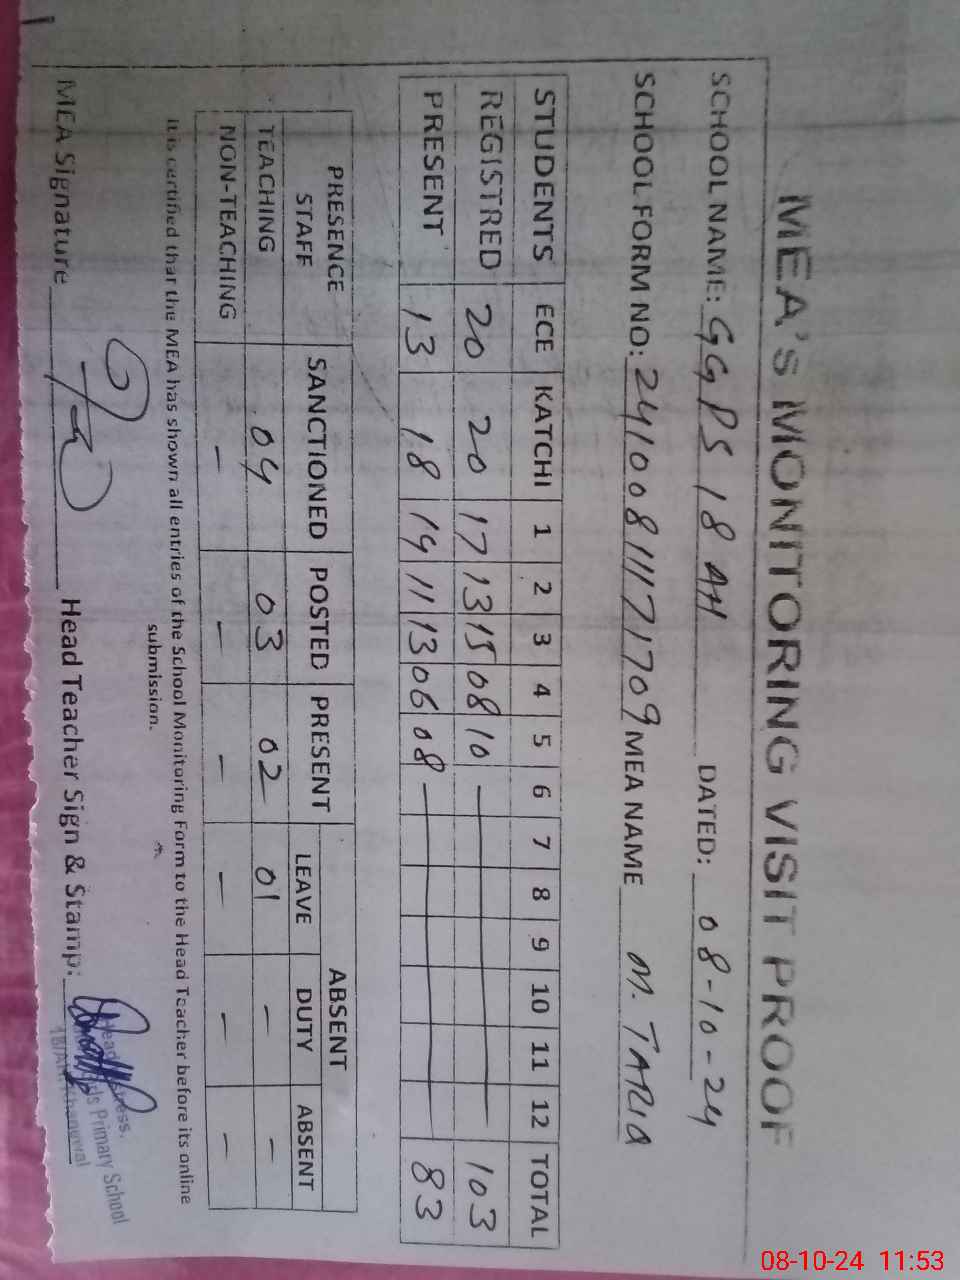 MEA'S MONITORING VISIT PROOF
SCHOOL NAME: GGPS 18 AH DATED: 08-10-24
SCHOOL FORM NO: 24100811171709 MEA NAME M. TARIQ
STUDENTS ECE KATCHI 1 2 3 4 5 6 7 8 9 10 11 12 TOTAL
REGISTRED 20 20 17 13 15 08 10 — 103
PRESENT 13 18 14 11 13 06 08 — 83
ABSENT
PRESENCE STAFF SANCTIONED POSTED PRESENT LEAVE DUTY ABSENT
TEACHING 04 03 02 01 - -
NON-TEACHING - - - - - -
It is certified that the MEA has shown all entries of the School Monitoring Form to the Head Teacher before its online
submission.
MEA Signature Head Teacher Sign & Stamp:
Primary School
18/AH
08-10-24 11:53